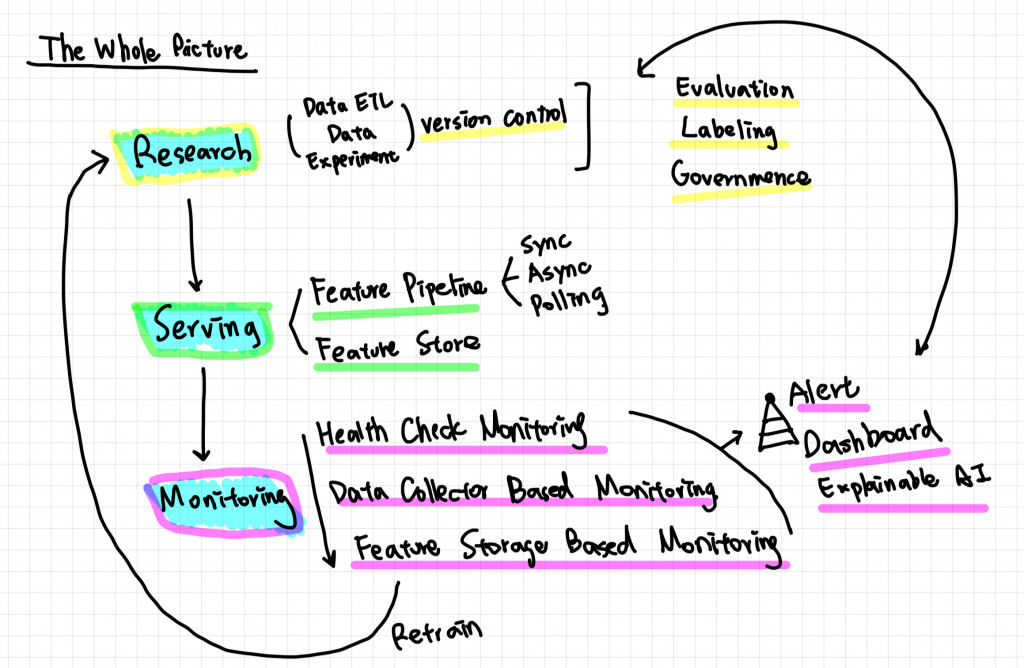 The Whole Picture
Research
Data ETL
Data
Experiment
version control
Evaluation
Labeling
Governmence
Serving
Feature Pipeline
Sync
Async
Polling
Feature Store
Monitoring
Health Check Monitoring
Data Collector Based Monitoring
Feature Storage Based Monitoring
Alert
Dashboard
Explainable AI
Retrain